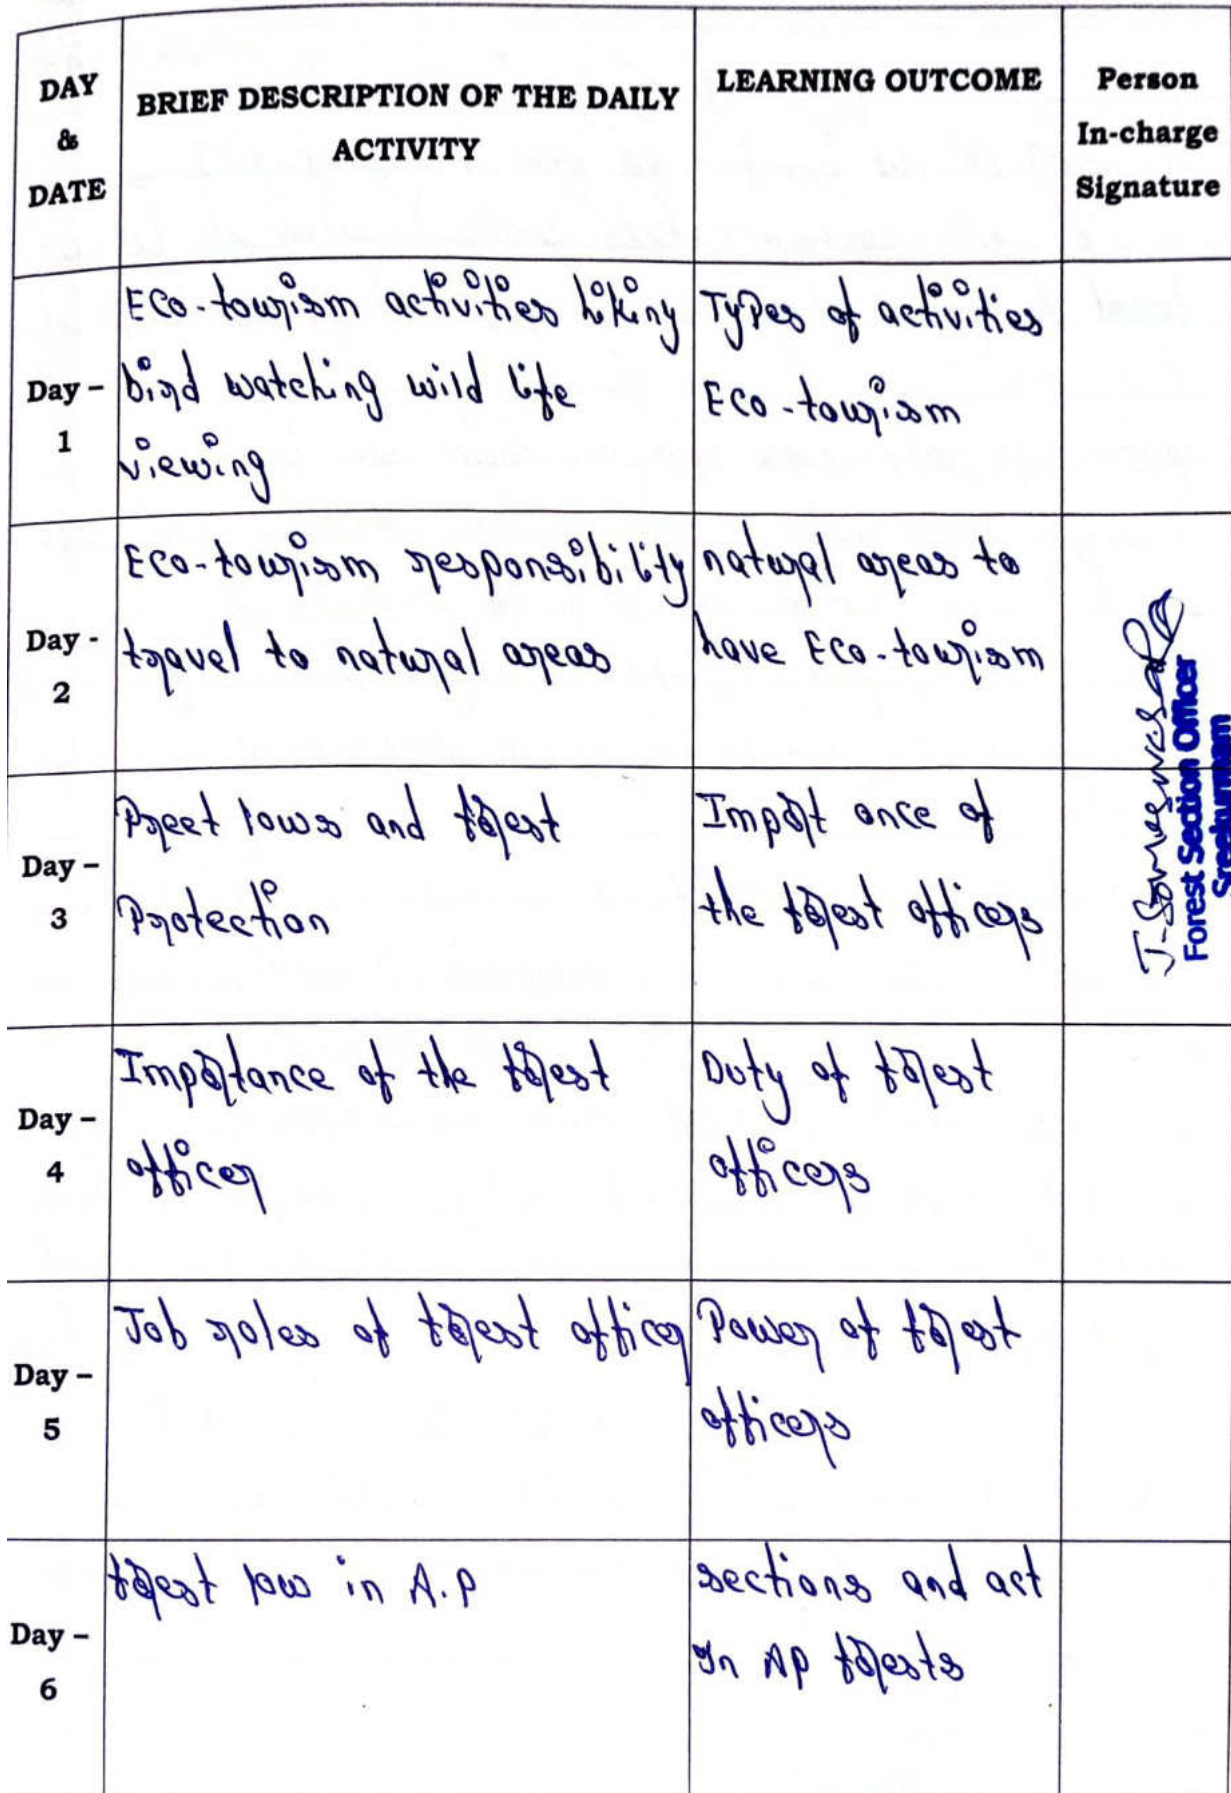 DAY
&
DATE
BRIEF DESCRIPTION OF THE DAILY
ACTIVITY
LEARNING OUTCOME
Person
In-charge
Signature
Day –
1
Eco-tourism activities hiking
bird watching wild life
viewing
Types of activities
Eco-tourism
Day -
2
Eco-tourism responsibility
travel to natural areas
natural areas to
have Eco-tourism
Day –
3
laws and forest
Protection
Import ance of
the forest officers
Forest Section Officer
Sreekurmam
Day –
4
Importance of the forest
officer
Duty of forest
officers
Day –
5
Job roles of forest officer
Power of forest
officers
Day –
6
forest law in A.P
sections and act
In AP forests